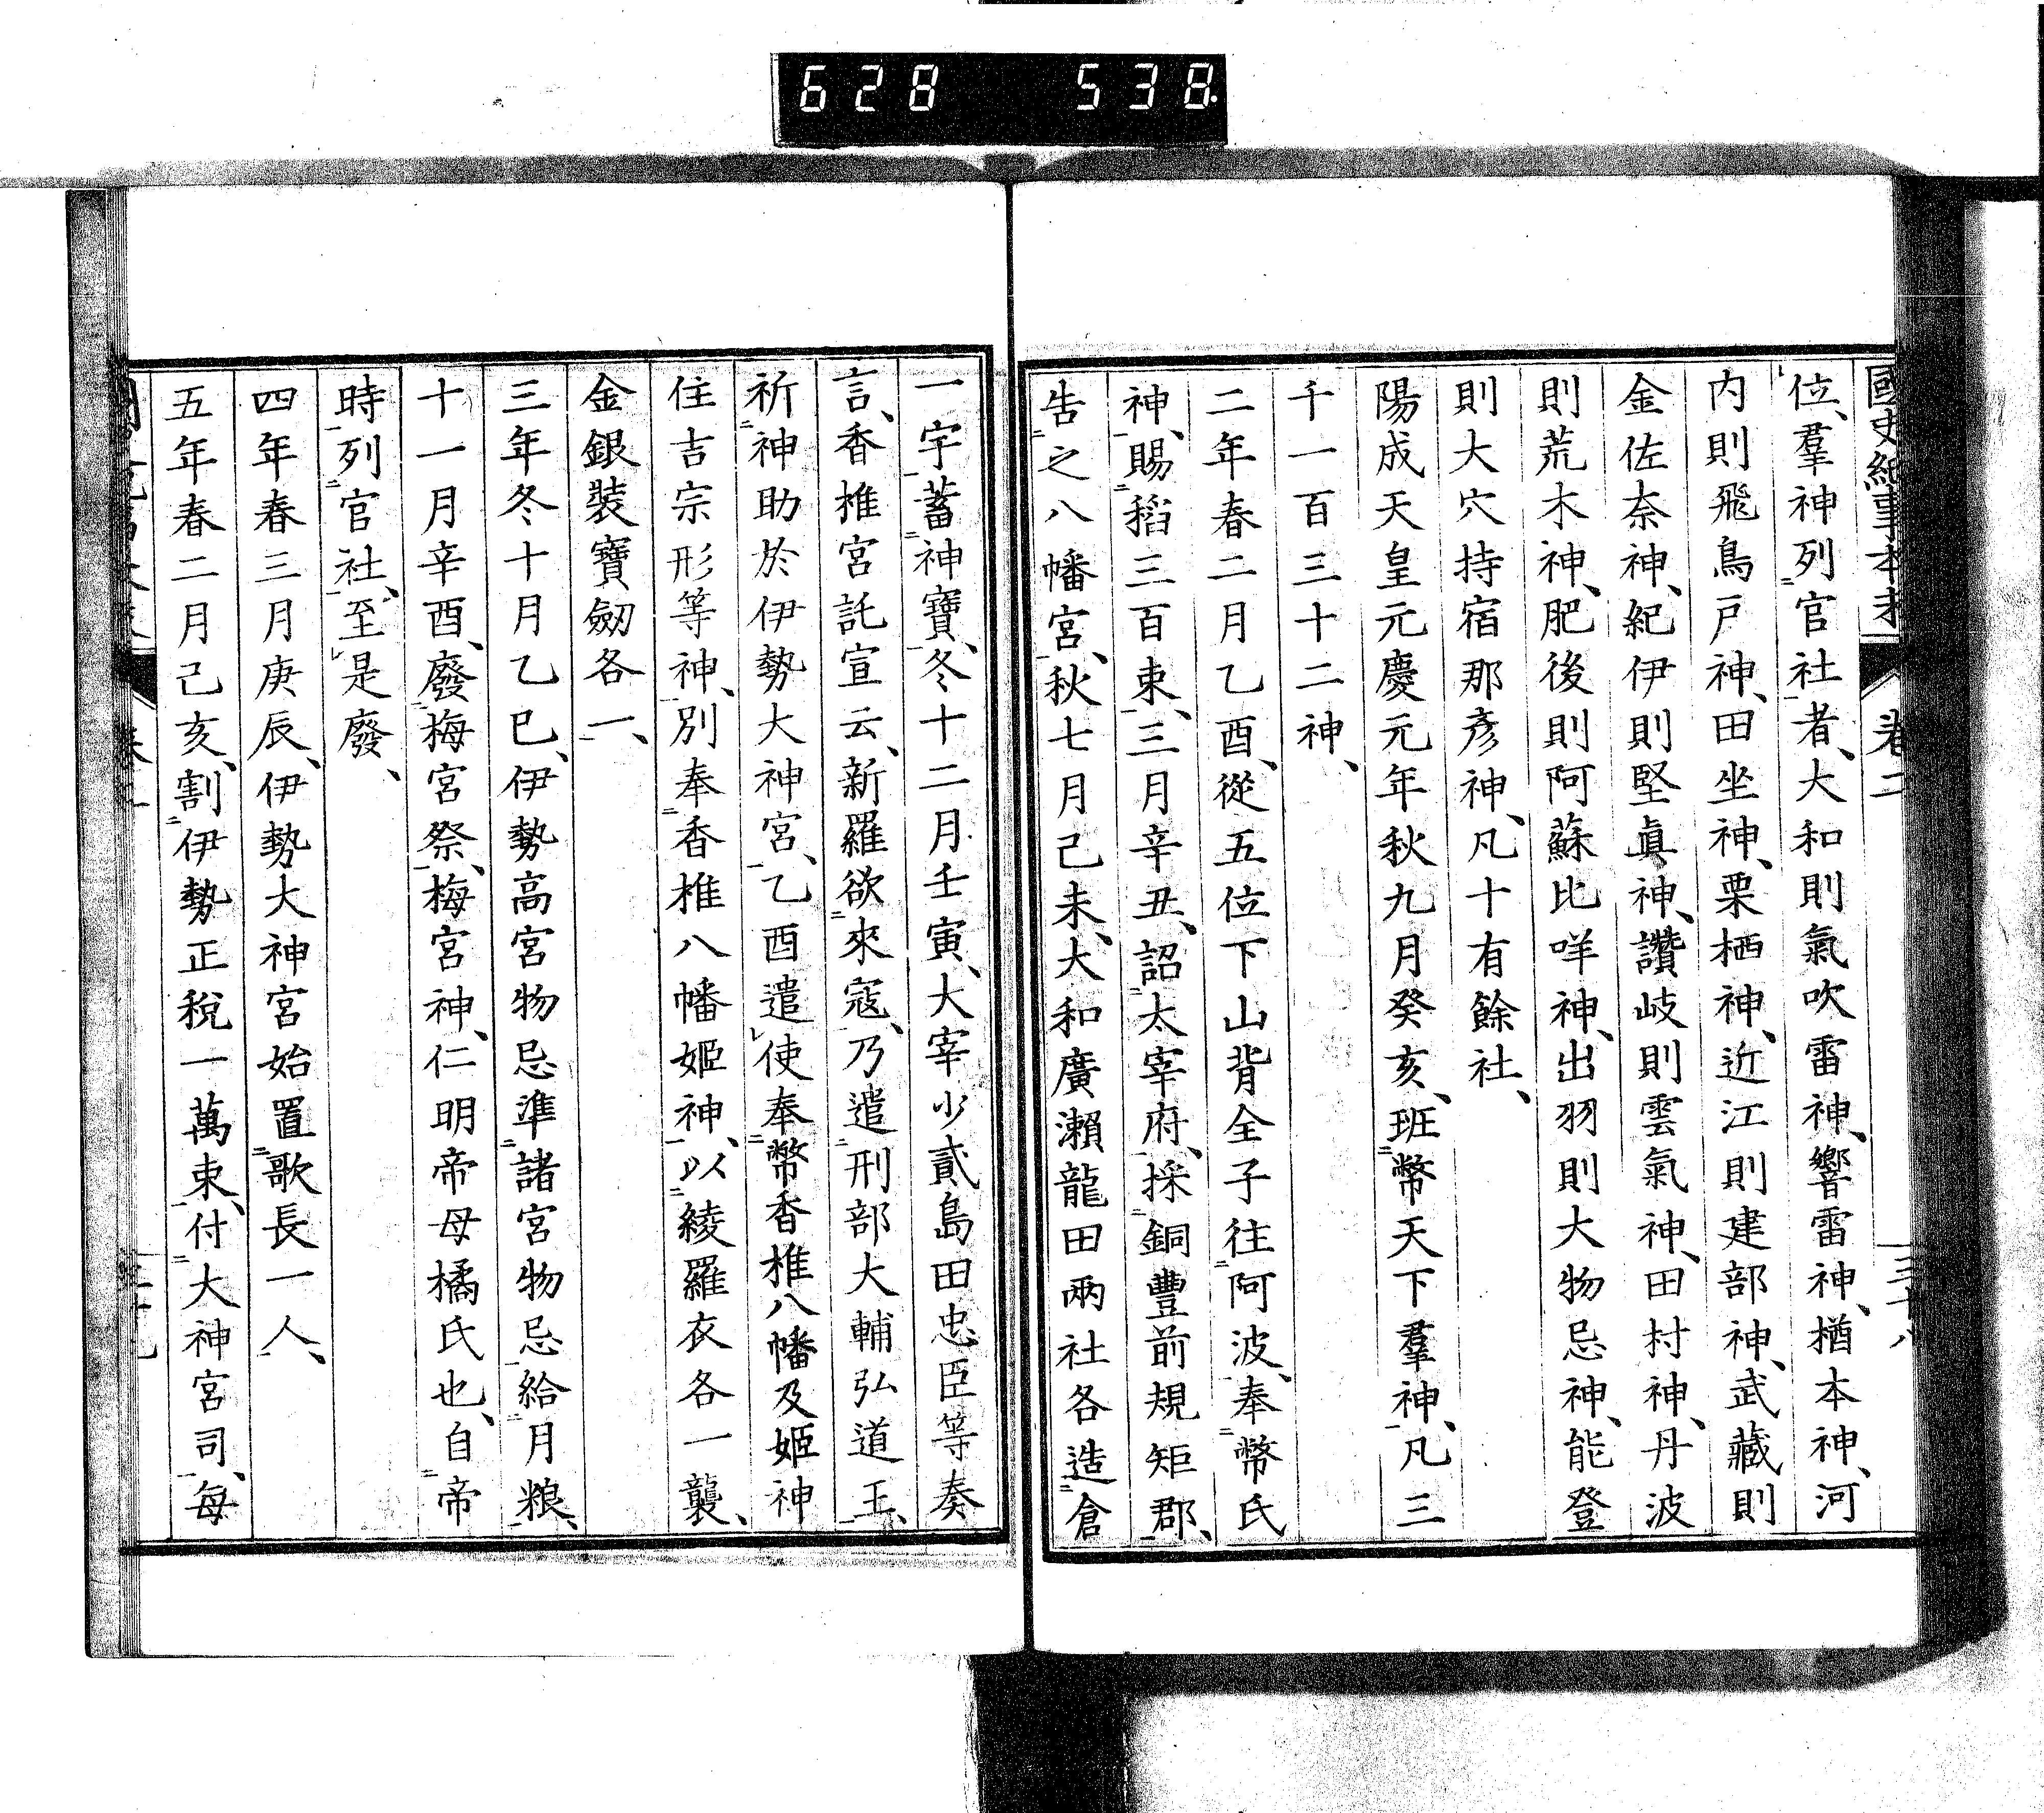 628 538
國史紀事本末 卷二 三十八
位、羣神列官社者、大和則氣吹雷神、響雷神、楢本神、河
内則飛鳥戸神、田坐神、栗栖神、近江則建部神、武藏則
金佐奈神、紀伊則堅眞神、讚岐則雲氣神、田村神、丹波
則荒木神、肥後則阿蘇比咩神、出羽則大物忌神、能登
則大穴持宿那彦神、凡十有餘社、
陽成天皇元慶元年秋九月癸亥、班幣天下羣神、凡三
千一百三十二神、
二年春二月乙酉、從五位下山背全子往阿波、奉幣氏
神、賜稻三百束、三月辛丑、詔太宰府、採銅豐前規矩郡、
告之八幡宮、秋七月己未、大和廣瀨龍田兩社各造倉
一宇蓄神寶、冬十二月壬寅、大宰少貳島田忠臣等奏
言、香椎宮託宣云、新羅欲來寇、乃遣刑部大輔弘道王、
祈神助於伊勢大神宮、乙酉遣使奉幣香椎八幡及姬神
住吉宗形等神、別奉香椎八幡姬神、以綾羅衣各一襲、
金銀裝寶劒各一、
三年冬十月乙巳、伊勢高宮物忌準諸宮物忌給月粮、
十一月辛酉、廢梅宮祭、梅宮神、仁明帝母橘氏也、自帝
時列官社、至是廢、
四年春三月庚辰、伊勢大神宮始置歌長一人、
五年春二月己亥、割伊勢正稅一萬束、付大神宮司、每